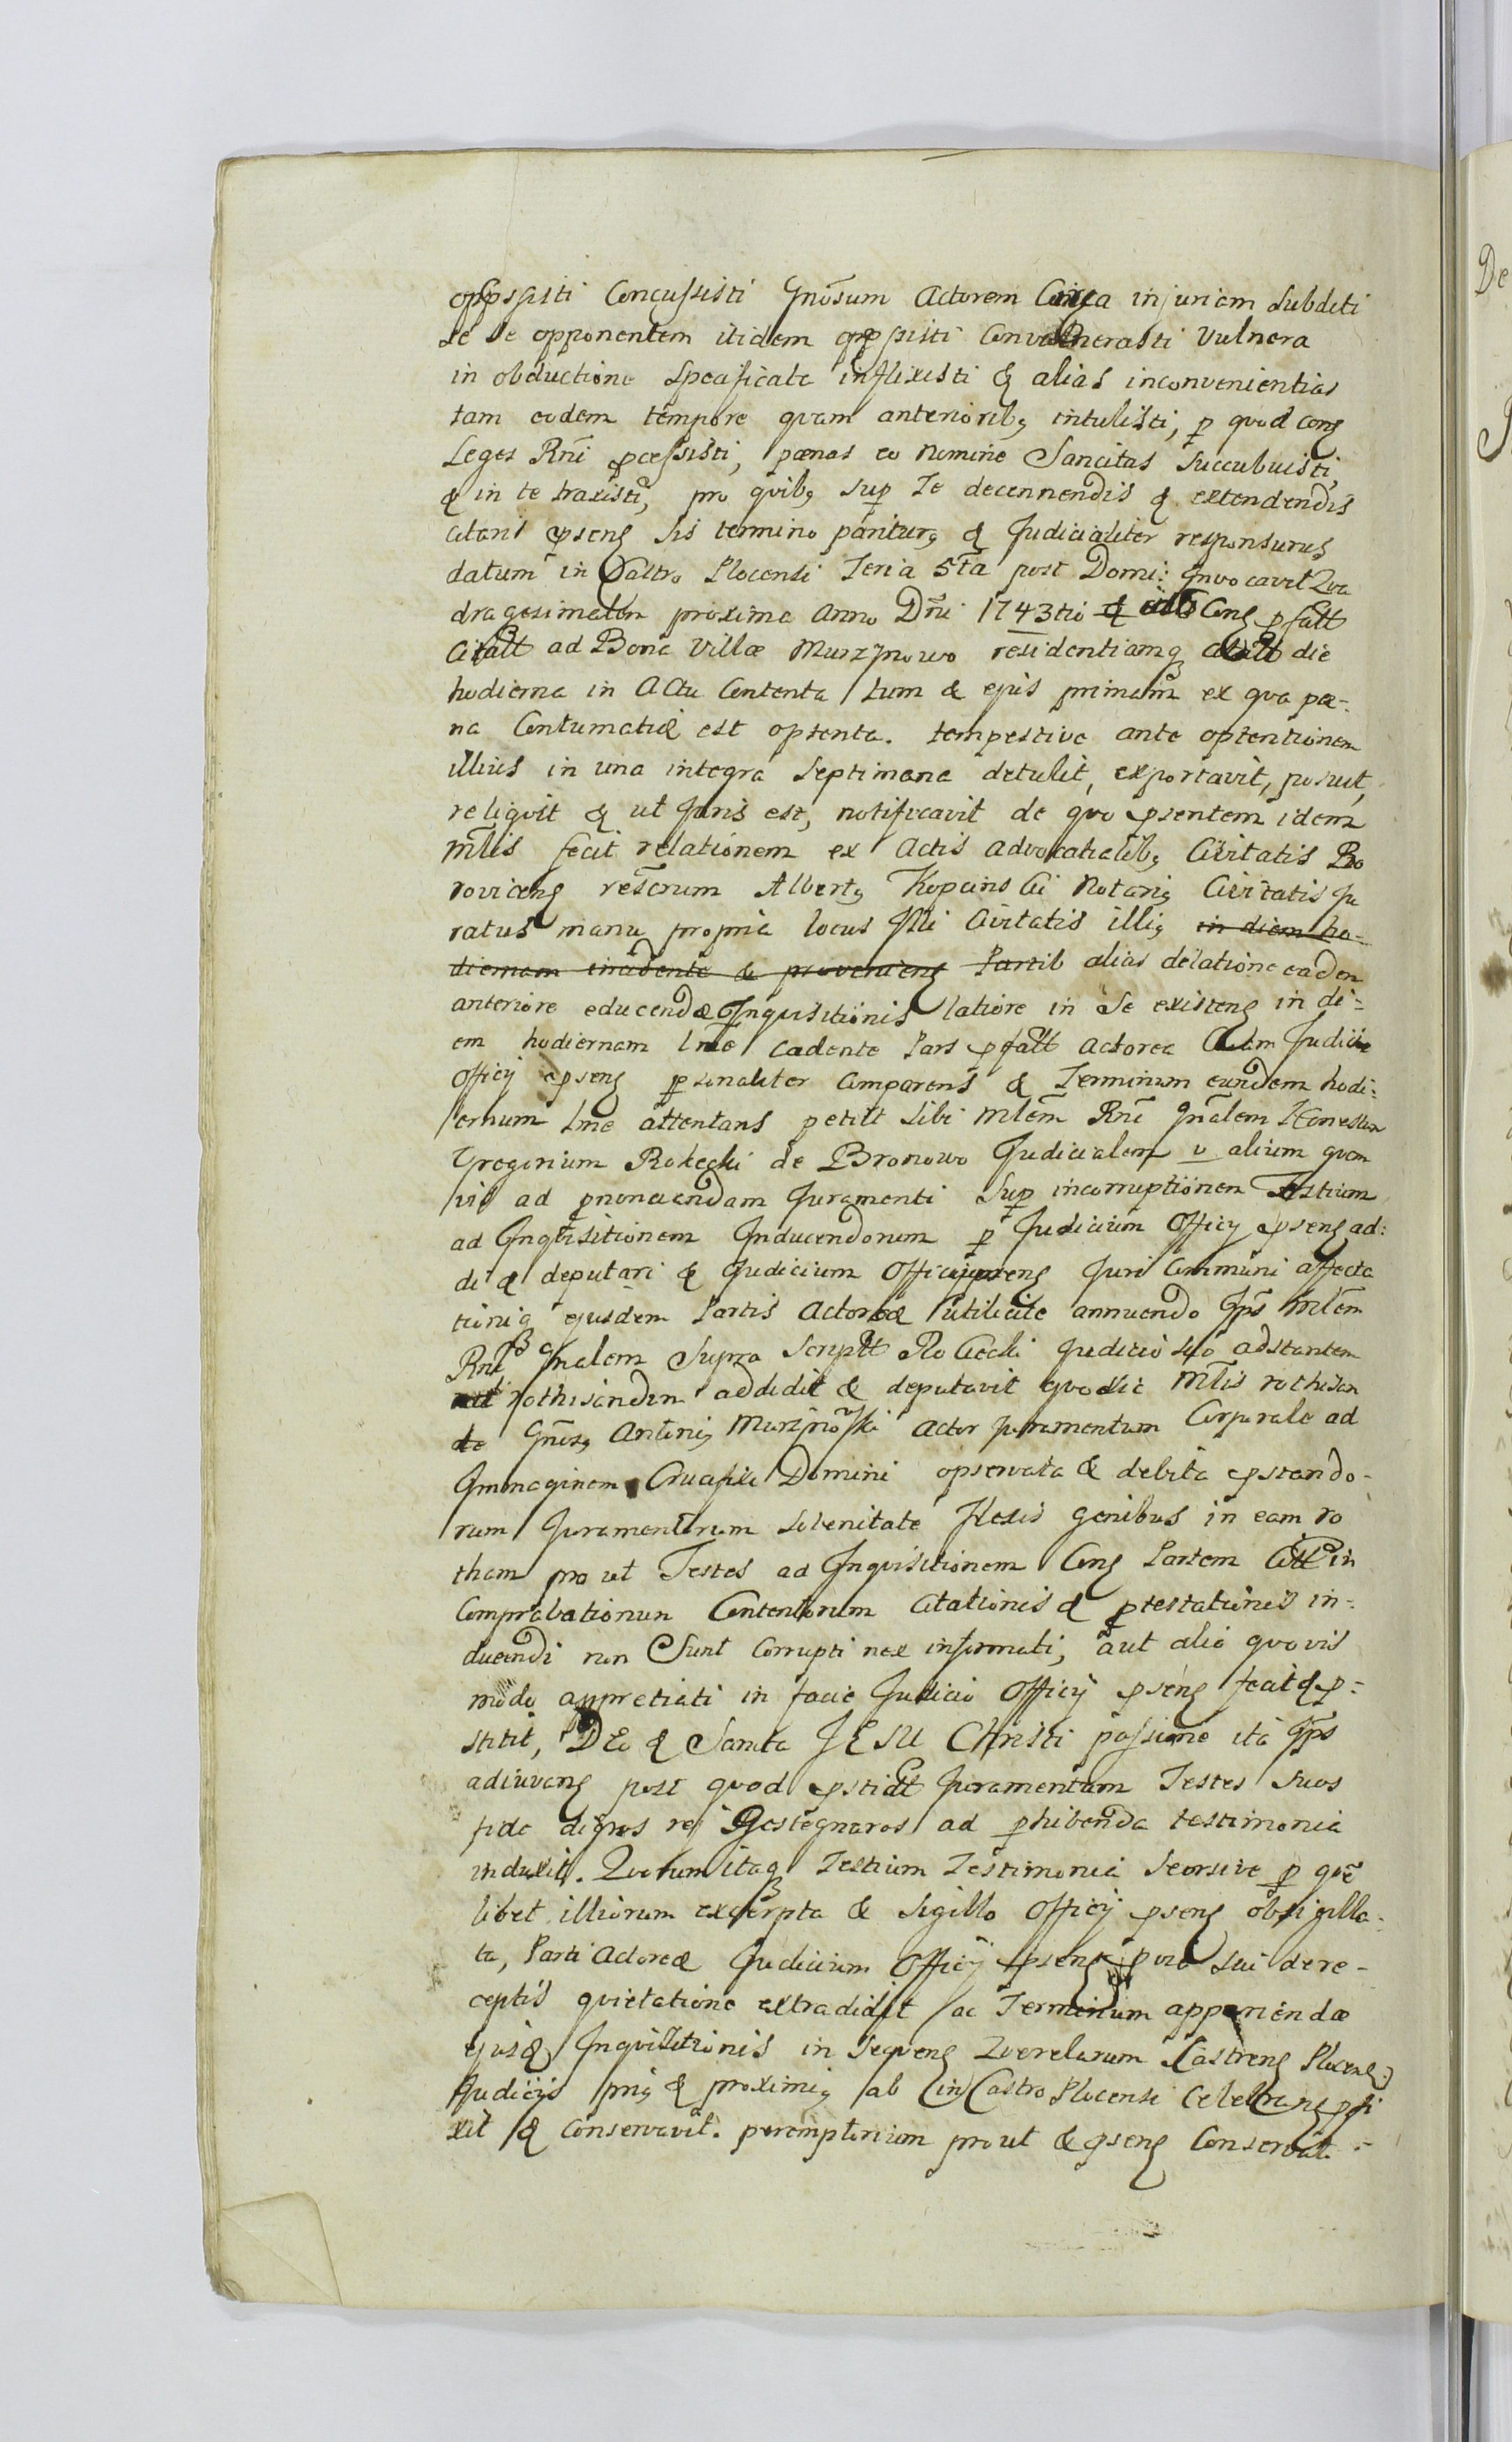 oppssisti Concussisti Gnōsum Actorem Circa injuriam Subditi
se se opponentem itidem oppssisti Convulnerasti Vulnera
in obductione Specificata inflixisti & alias inconvenientias
tam eodem tempore qvam anterioribg intulisti, p qvod cong
Leges Rnī pcessisti, pœnas eo nomine Sancitas Succubuisti,
& in te traxisti, pro qvibg sup Te decernendis & extendendis
citaris pseng sis termino pariturg & Judicialiter responsurug
datum in Castro Plocensi Feria 5ta post Domi: Invocavit Qva
dragesimalem proxima Anno Dnī 1743tio & Cong pfatt
Citatt ad Bona Villæ Murzynowo residentiamq Citatt die
hodierna in Actu Contenta tum & ejus primam ex qva pœ-
na Contumatiæ est optenta. tempestive ante optentionem
illius in una integra Septimana detulit, exportavit, posuit,
reliqvit & ut Juris est, notificavit de qvo psentem idem
Mlis fecit relationem ex Actis Advocatialibg Civitatis Bo
roviceng rescrum Albertg Kopcinski Notarig Civitatis Ju
ratus manu propria locus Slli Civitatis illig in diem ho-
diernam incidente & proveniens Partib alias delatione eadem
anteriore educendæ Inqvisitionis latiore in Se existeng in di-
em hodiernam lme cadente Pars pfatt Actorea Coram Judicio
Officij pseng psonaliter Comparens & Terminum eundem hodi-
ernum lme attentans petiit Sibi Mlēm Rnī Gnālem Honestum
Gregorium Rokicki de Bronowo Judicialem v alium qvem
vis ad pnunciandam Juramenti Sup incorruptionem Testium
ad Inqvisitionem Inducendorum p Judicium Officij pseng ad-
di & deputari & Judicium Officij pseng Juri Communi affecta
tioniq ejusdem Partis Actoreæ utilicite annuendo Ips Mlēm
Rnī Gnalem Supra Scriptt Rokicki Judicio suo adstantem
rothisandum addidit & deputavit qvo sic Mlis rothisan
te Gnēsg Antonig Murzynowski Actor Juramentum Corporale ad
Immaginem Crucifixi Domini opservata & debita pstando-
rum Juramentorum Solenitate flexis genibus in eam ro
tham pro ut Testes ad Inqvisitionem Cong Partem Citt in
Comprobationem Contentorum Citationis & ptestationis in-
ducendi non Sunt Corrupti nec informati, aut alio qvovis
modo appretiati in facie Judicio Officij pseng fecit & p-
stitit, DEo & Sancta JESU Christi passione ita Ips
adiuvang post qvod pstitt Juramentum Testes Suos
fide dignos rej Gestegnaros ad phibenda testimonia
induxit. Qvorum itaq Testium Testimonia Seorsive p qvē
libet illiorum excerpta & Sigillo Officij pseng obsigilla-
ta, Parti Actoreæ Judicium Officij pseng sui de re-
ceptis qvietatione extradidit ac Terminum apperiendæ
ejusq Inqvisitionis in Seqveng Qverelarum Castreng Ploceng
Judicijs prig & proximig ab (in) Castro Plocensi Celebrang pfi
xit & Conservavit. peremptorium pro ut & pseng Conservat.